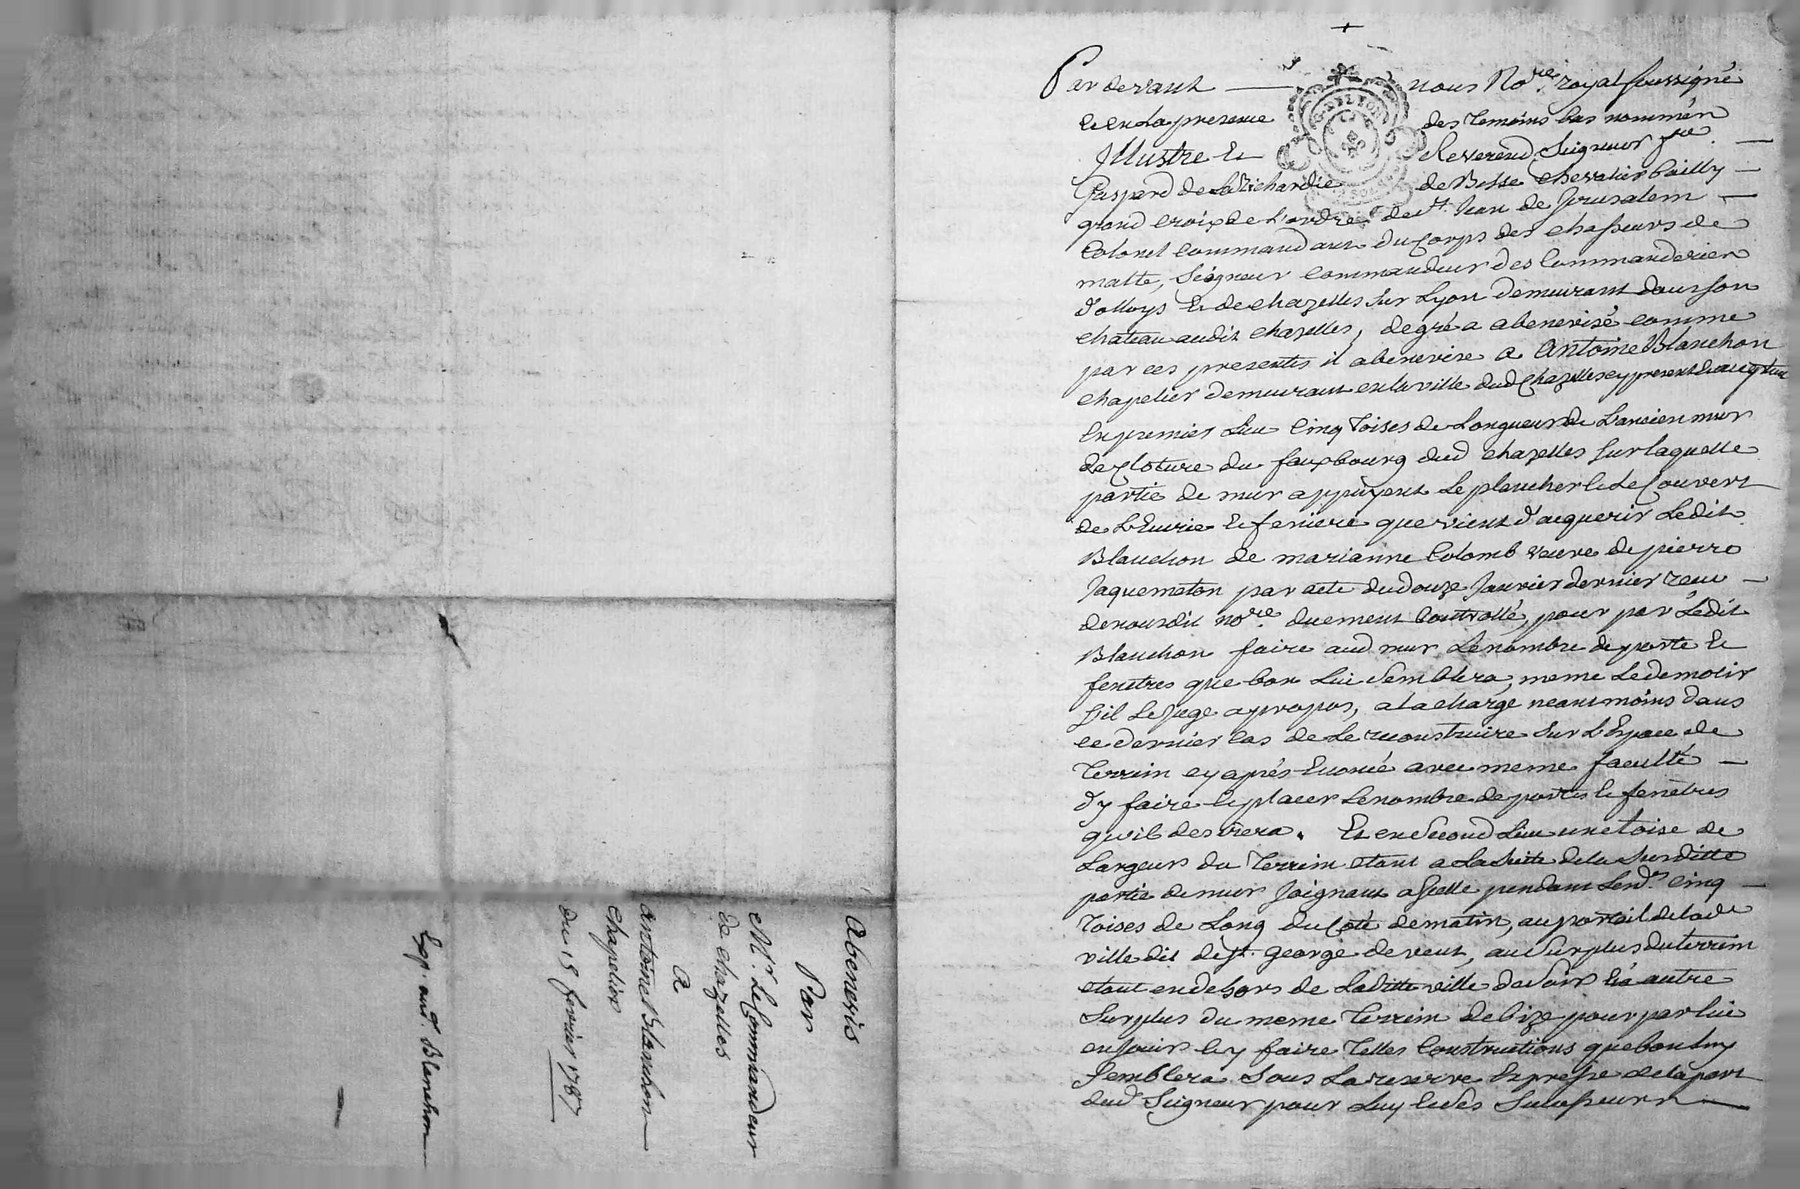 Par devant nous No.re royal soussigné
et en la presence des temoins bas nommés
Illustre et Reverend Seigneur f.re
Gaspard de La Richardie de Besse chevalier bailly
grand croix de l'ordre de St. Jean de Jerusalem
Colonel commandant du Corps des chasseurs de
malte, Seigneur commandeur des Commanderies
d'olloys et de chazelles sur Lyon demeurant dans son
chateau audit chazelles, de gré a abenevisé comme
par ces presentes il abenevise a Antoine Blanchon
chapelier demeurant en la ville dud Chazelles cy present et acceptant
En premier Lieu Cinq Toises de Longueur de L'ancien mur
de Cloture du fauxbourg dud chazelles sur laquelle
partie de mur appuyent Le plancher et Le Couvert
de L'Ecurie et feniere que vient d'acquerir Ledit
Blanchon de marianne Colomb veuve de pierre
Jaquemeton par acte du douze Janvier dernier recu
de nousdit no.re duement Controllé, pour par Ledit
Blanchon faire aud mur Le nombre de porte et
fenetres que bon Lui Semblera, meme Le demolir
S'il Le Juge apropos, a la charge neanmoins dans
ce dernier Cas de Le reconstruire sur L'Espace de
Terrein cy après Enoncé avec meme faculté
d'y faire et placer Le nombre de portes et fenètres
qu'il desirera. Et en Second Lieu une toise de
Largeur du Terrein etant a La Suite de la Susditte
partie de mur Joignant a Icelle pendant Lesd.s Cinq
Toises de Long du Coté de matin, au portail de lade
ville dit de St. George de vent, au Surplus du terrein
etant en dehors de Laditte ville de Soir et a autre
Surplus du meme Terrein de bize pour par lui
en Jouir et y faire Telles Constructions que bon luy
Semblera Sous La reserve Expresse de la part
dud Seigneur pour Luy et Ses Successeurs
Abenevis
Par
Mr. Le Commandeur
de chazelles
A
Antoine Blanchon
chapelier
du 15 fevrier 1787
Exp. aud. Blanchon